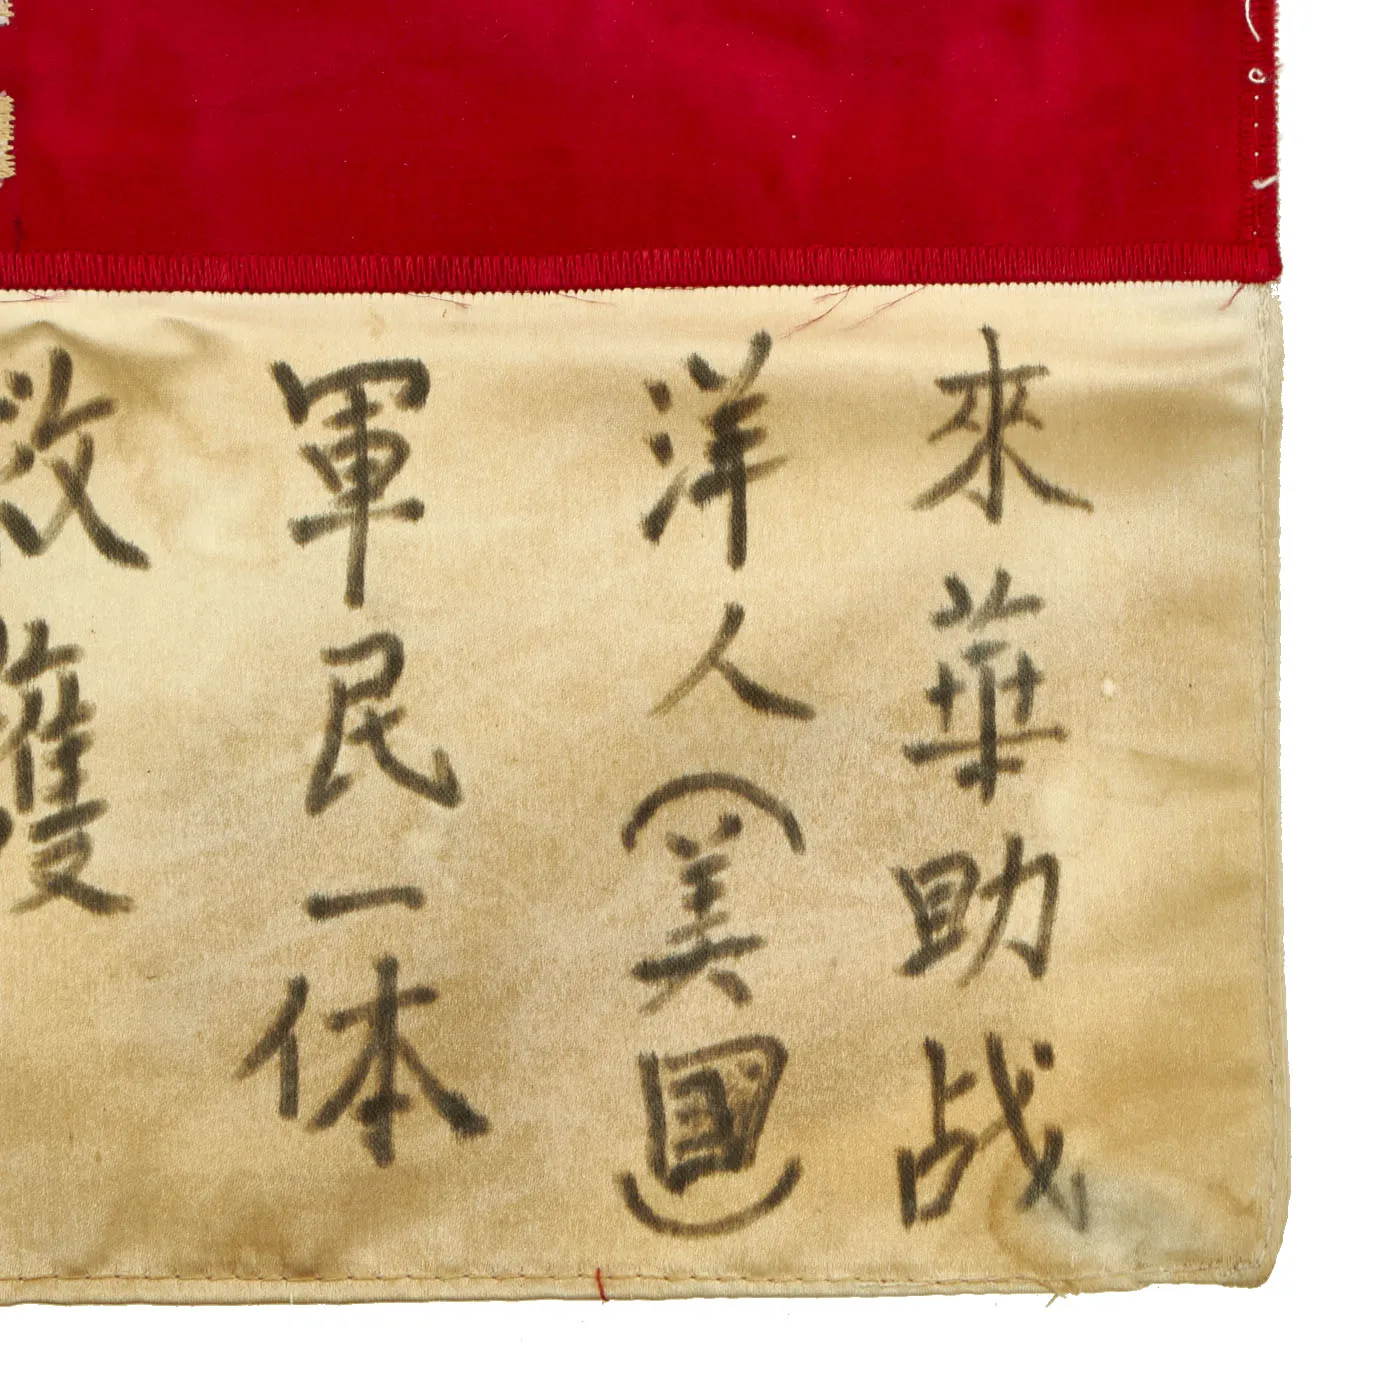 來華助战
洋人(美國)
軍民一体
救護